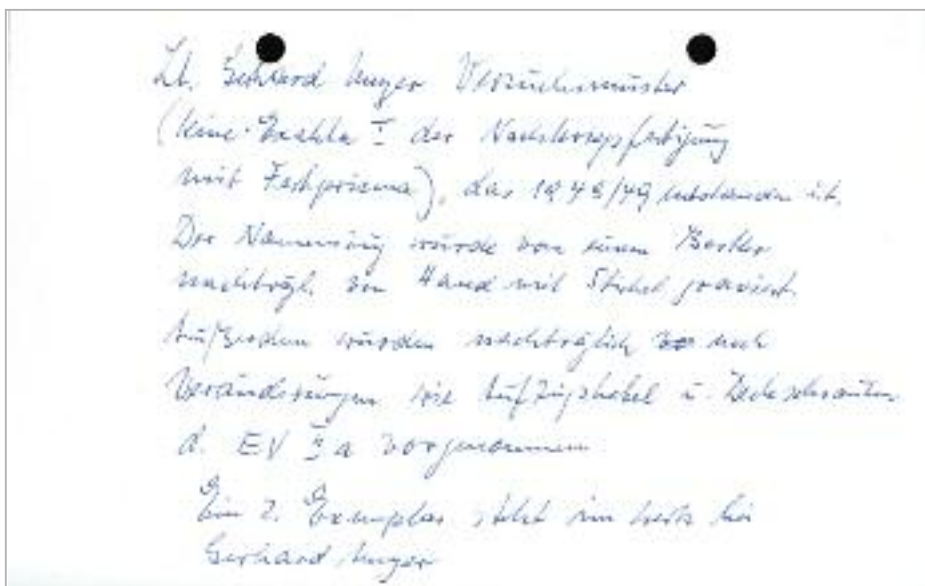 Lt. Gerhard Unger Versuchsmuster
(Kine-Exakta I der Nachkriegsfertigung
mit Festprisma), das 1948/49 entstanden ist.
Der Namenszug wurde von einem Bastler
nachträgl. von Hand mit Stichel graviert.
Außerdem wurden nachträglich noch
Veränderungen wie Aufzugshebel u. Deckschrauben
d. EV II a vorgenommen
Ein 2. Exemplar steht im bei
Gerhard Unger